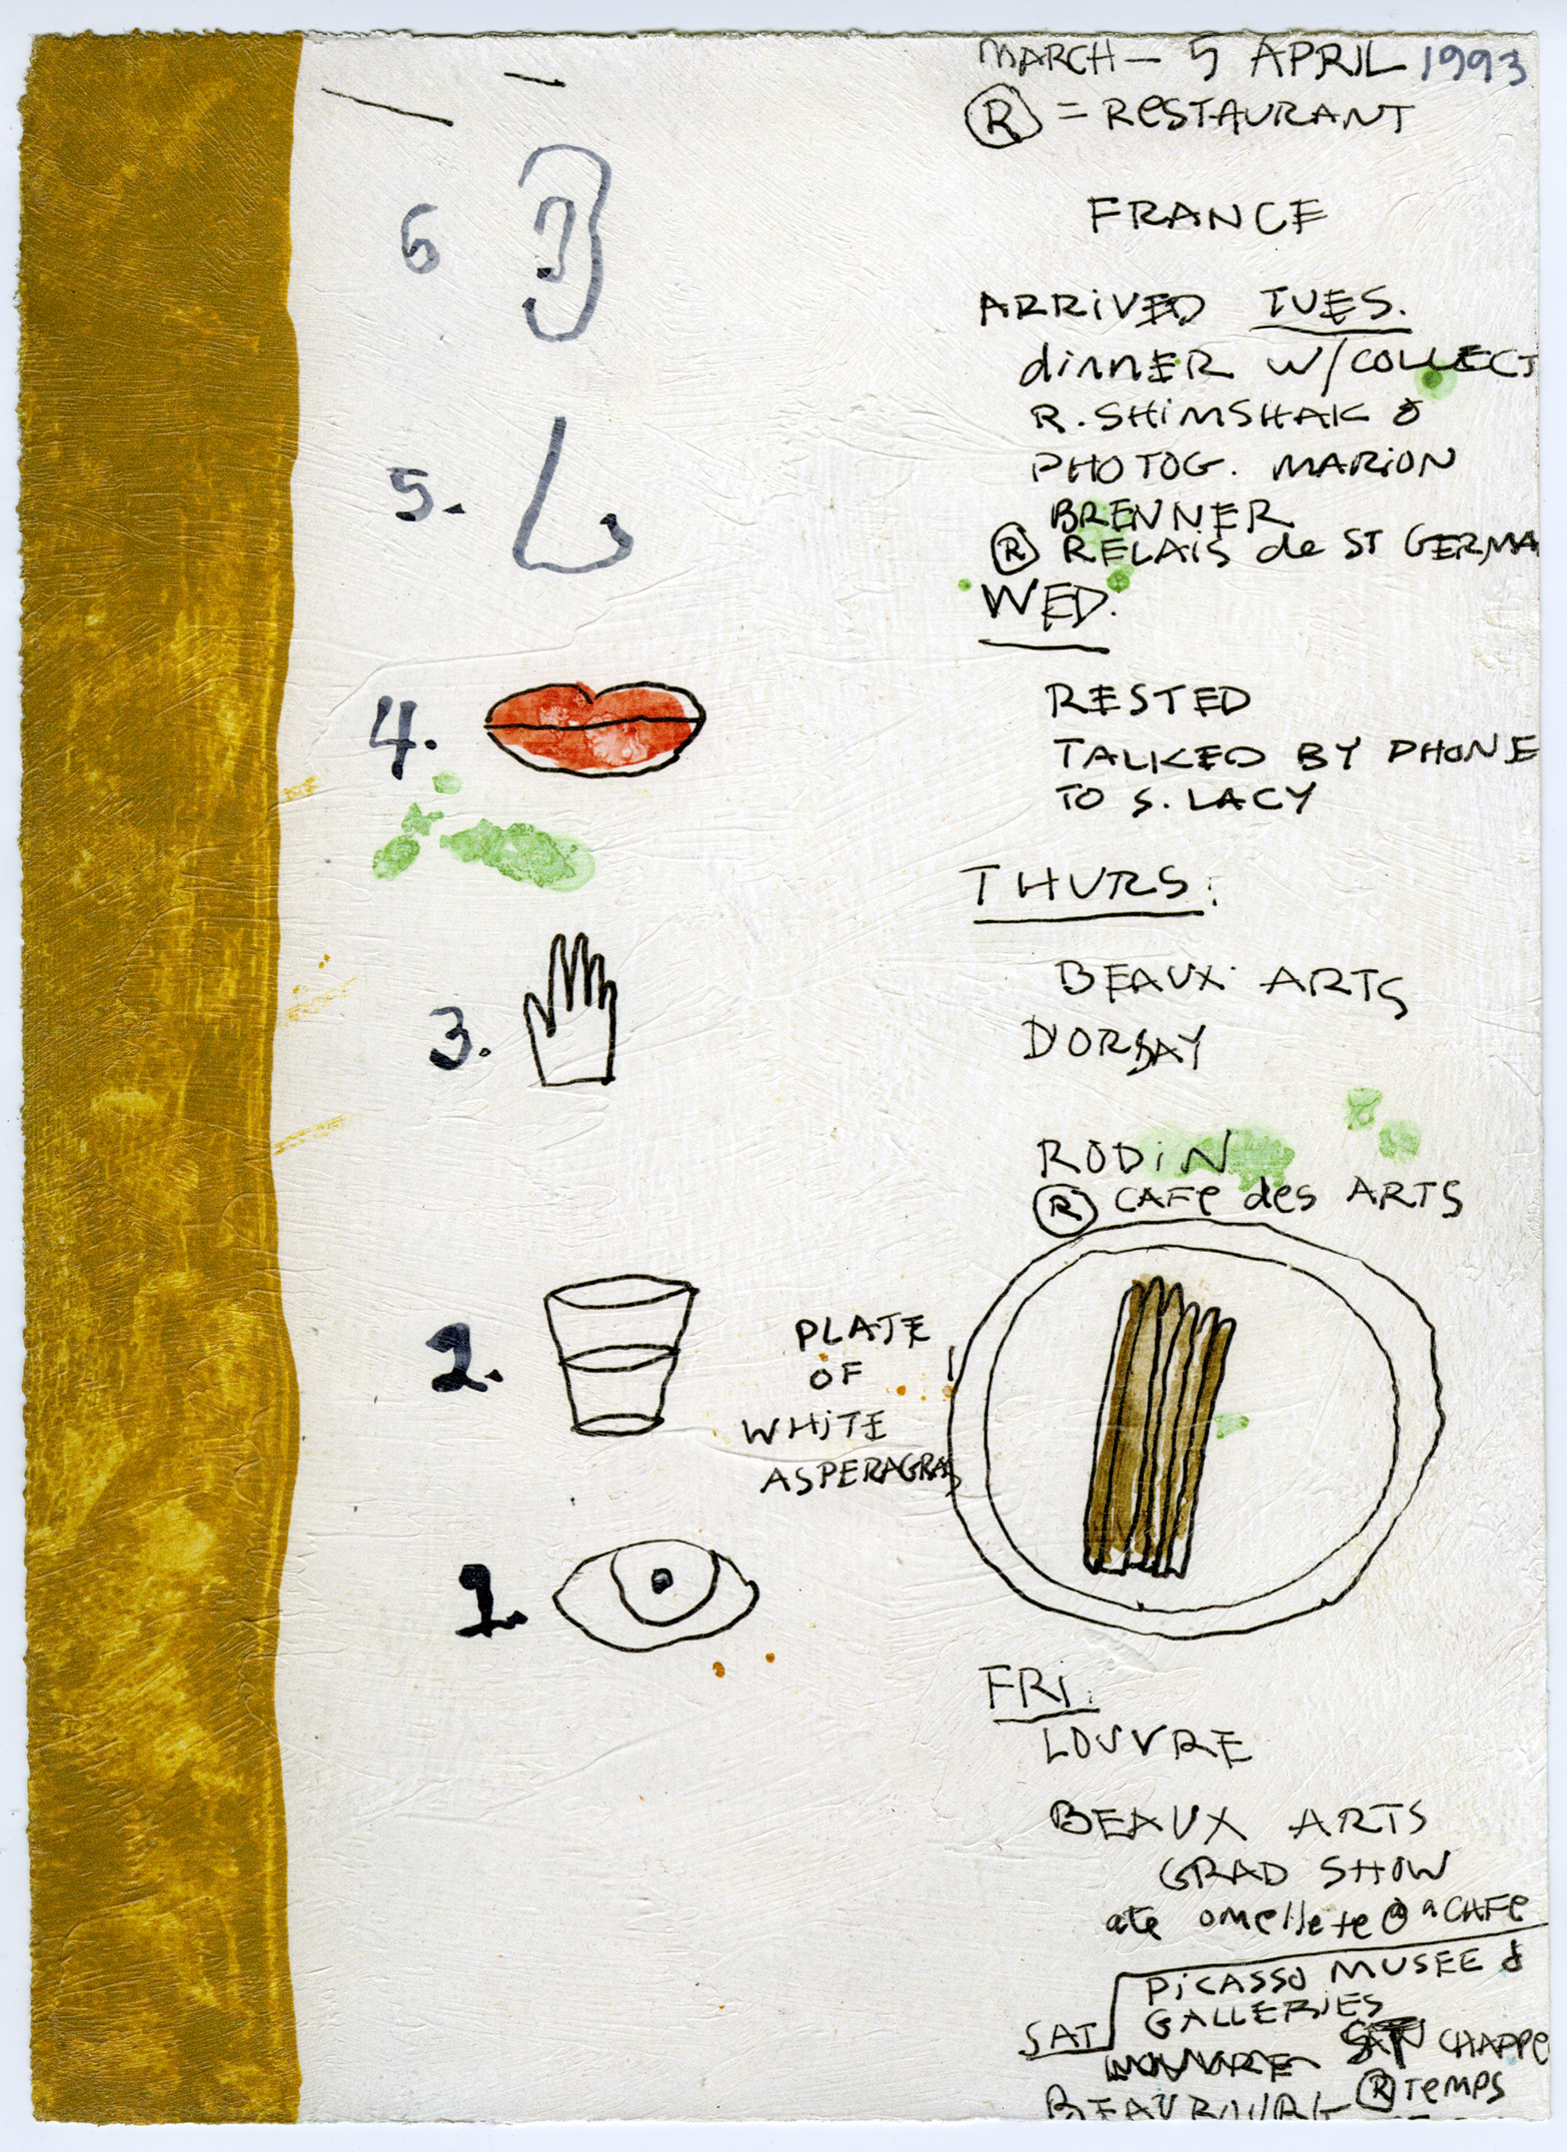 MARCH — 5 APRIL 1993
Ⓡ = RESTAURANT
FRANCE
ARRIVED TUES.
dinner w/COLLECT
R. SHIMSHAK &
PHOTOG. MARION
BRENNER
Ⓡ RELAIS de ST GERMA
WED.
RESTED
TALKED BY PHONE
TO S. LACY
THURS:
BEAUX ARTS
D'ORSAY
RODIN
Ⓡ CAFe des ARTS
6
5.
4.
3.
2.
1.
PLATE
OF
WHITE
ASPERAGRAS
FRI.
LOUVRE
BEAUX ARTS
GRAD SHOW
ate omellete @ a CAFe
SAT
PICASSO MUSEE &
GALLERIES
CHAPPE
Ⓡ TEMPS
BEAUBOURG